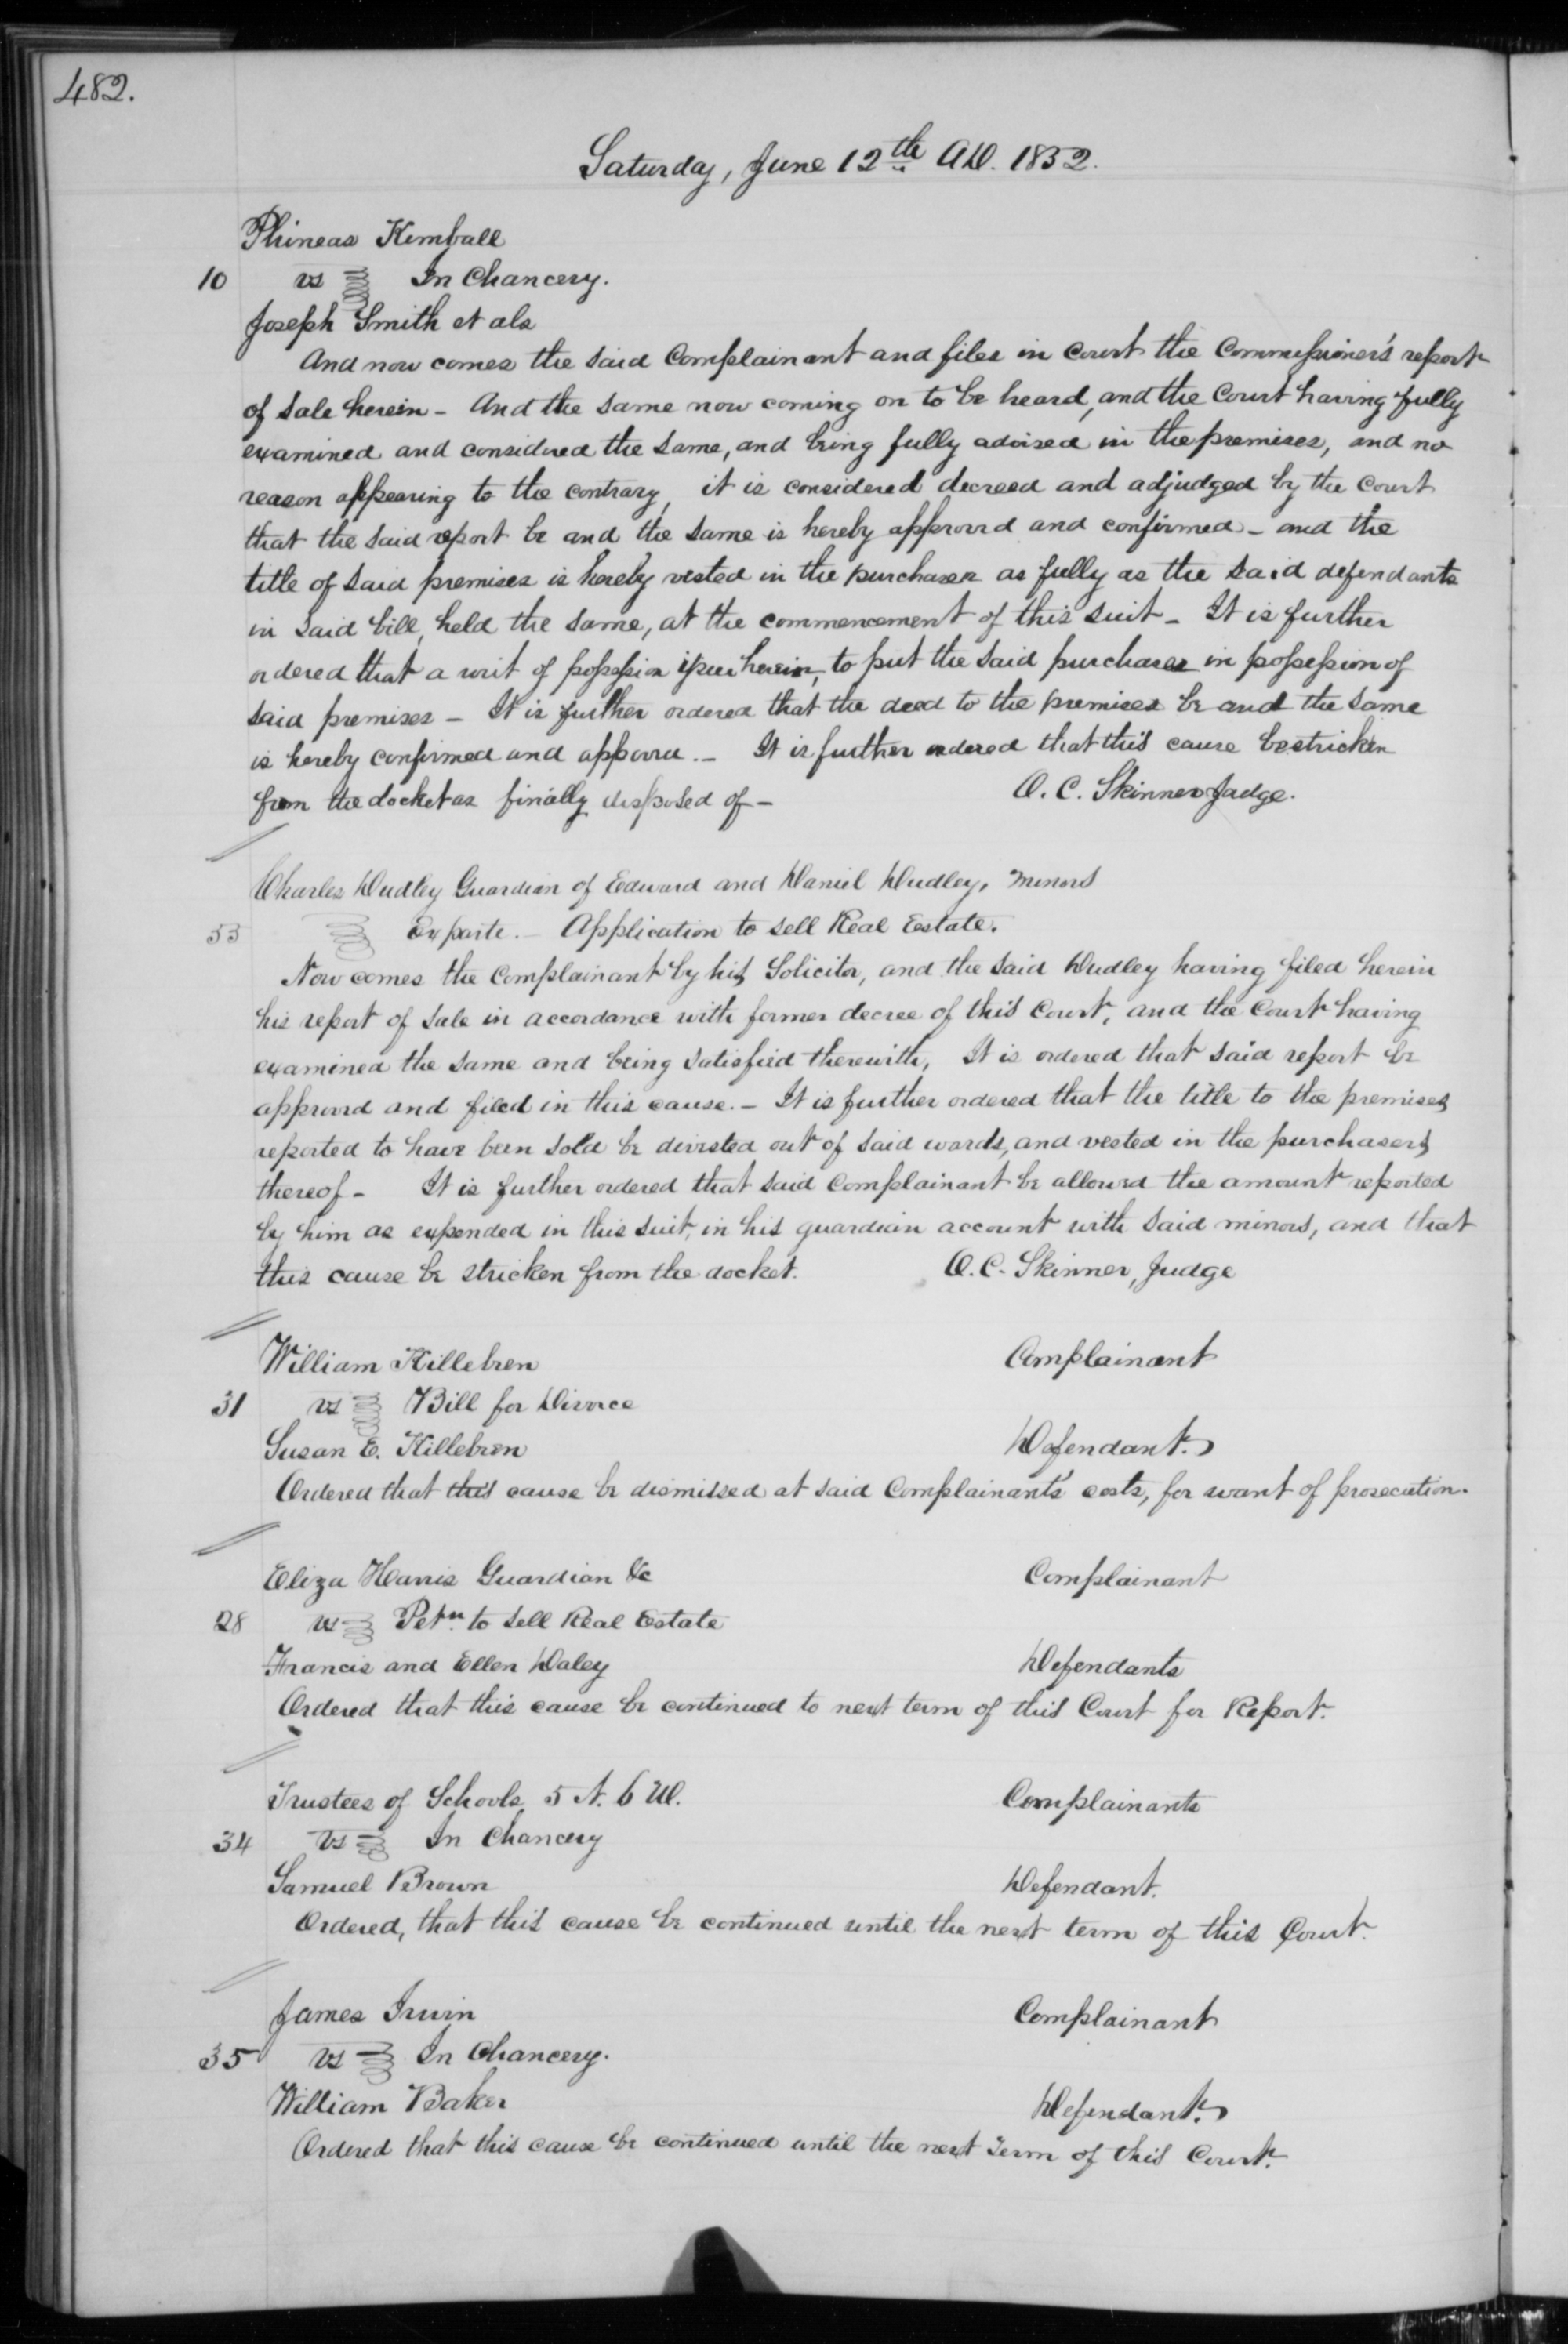 482.
Saturday, June 12th AD. 1852.
Phineas Kimball
10 vs In Chancery.
Joseph Smith et als
And now comes the said Complainant and files in Court the Commissioner's report
of sale herein - And the same now coming on to be heard, and the Court having fully
examined and considered the same, and being fully advised in the premises, and no
reason appearing to the contrary, it is considered decreed and adjudged by the Court
that the said report be and the same is hereby approved and confirmed - and the
title of said premises is hereby vested in the purchaser as fully as the said defendants
in said bill, held the same, at the commencement of this suit - It is further
ordered that a writ of possession issue herein, to put the said purchaser in possession of
said premises - It is further ordered that the deed to the premises be and the same
is hereby confirmed and approved. - It is further ordered that this cause be stricken
from the docket as finally disposed of - O. C. Skinner Judge.
Charles Dudley Guardian of Edward and Daniel Dudley, minors
53 Ex parte. - Application to sell Real Estate.
Now comes the Complainant by his Solicitor, and the said Dudley having filed herein
his report of sale in accordance with former decree of this Court, and the Court having
examined the same and being satisfied therewith, It is ordered that said report be
approved and filed in this cause. - It is further ordered that the title to the premises
reported to have been sold be divested out of said wards, and vested in the purchasers
thereof - It is further ordered that said Complainant be allowed the amount reported
by him as expended in this suit, in his guardian account with said minors, and that
this cause be stricken from the docket. O. C. Skinner, Judge
William Killebren Complainant
31 vs Bill for Divorce
Susan E. Killebren Defendant.
Ordered that this cause be dismissed at said Complainants costs, for want of prosecution.
Eliza Harris Guardian &c Complainant
28 vs Petn. to sell Real Estate
Francis and Ellen Daley Defendants
Ordered that this cause be continued to next term of this Court for Report.
Trustees of Schools 5 N. 6 W. Complainants
34 vs In Chancery
Samuel Brown Defendant.
Ordered, that this cause be continued until the next term of this Court.
James Irwin Complainant
35 vs In Chancery.
William Baker Defendant.
Ordered that this cause be continued until the next Term of this Court.